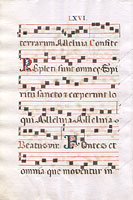 LXVI.
terrarum Alleluia Confite
Repleti sunt omnes Spi
ritu sancto & ceperunt lo
qui. Alleluia Alleluia
Beatus vir. Fontes et
omnia que moventur in